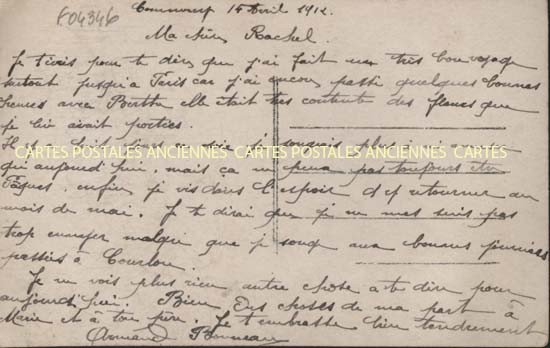 F04346
14 Avril 1912.
Ma chère Rachel.
Je t'écris pour te dire que j'ai fait un très bon voyage
surtout jusqu'à Paris car j'ai encore passé quelques bonnes
heures avec Bertha elle était très contente des fleurs que
je lui avait portées.
CARTES POSTALES ANCIENNES CARTES POSTALES ANCIENNES CARTES
qui aujourd'hui, mais ça ne peux pas toujours être
Pâques, enfin je vis dans l'espoir d'y retourner au
mois de mai. Je te dirai que je ne me suis pas
trop ennuyer malgré que je songe aux bonnes journées
passées à Courlon.
Je ne vois plus rien autre chose à te dire pour
aujourd'hui. Bien des choses de ma part à
Marie et à ton père. Je t'embrasse bien tendrement
Armand Bonneau